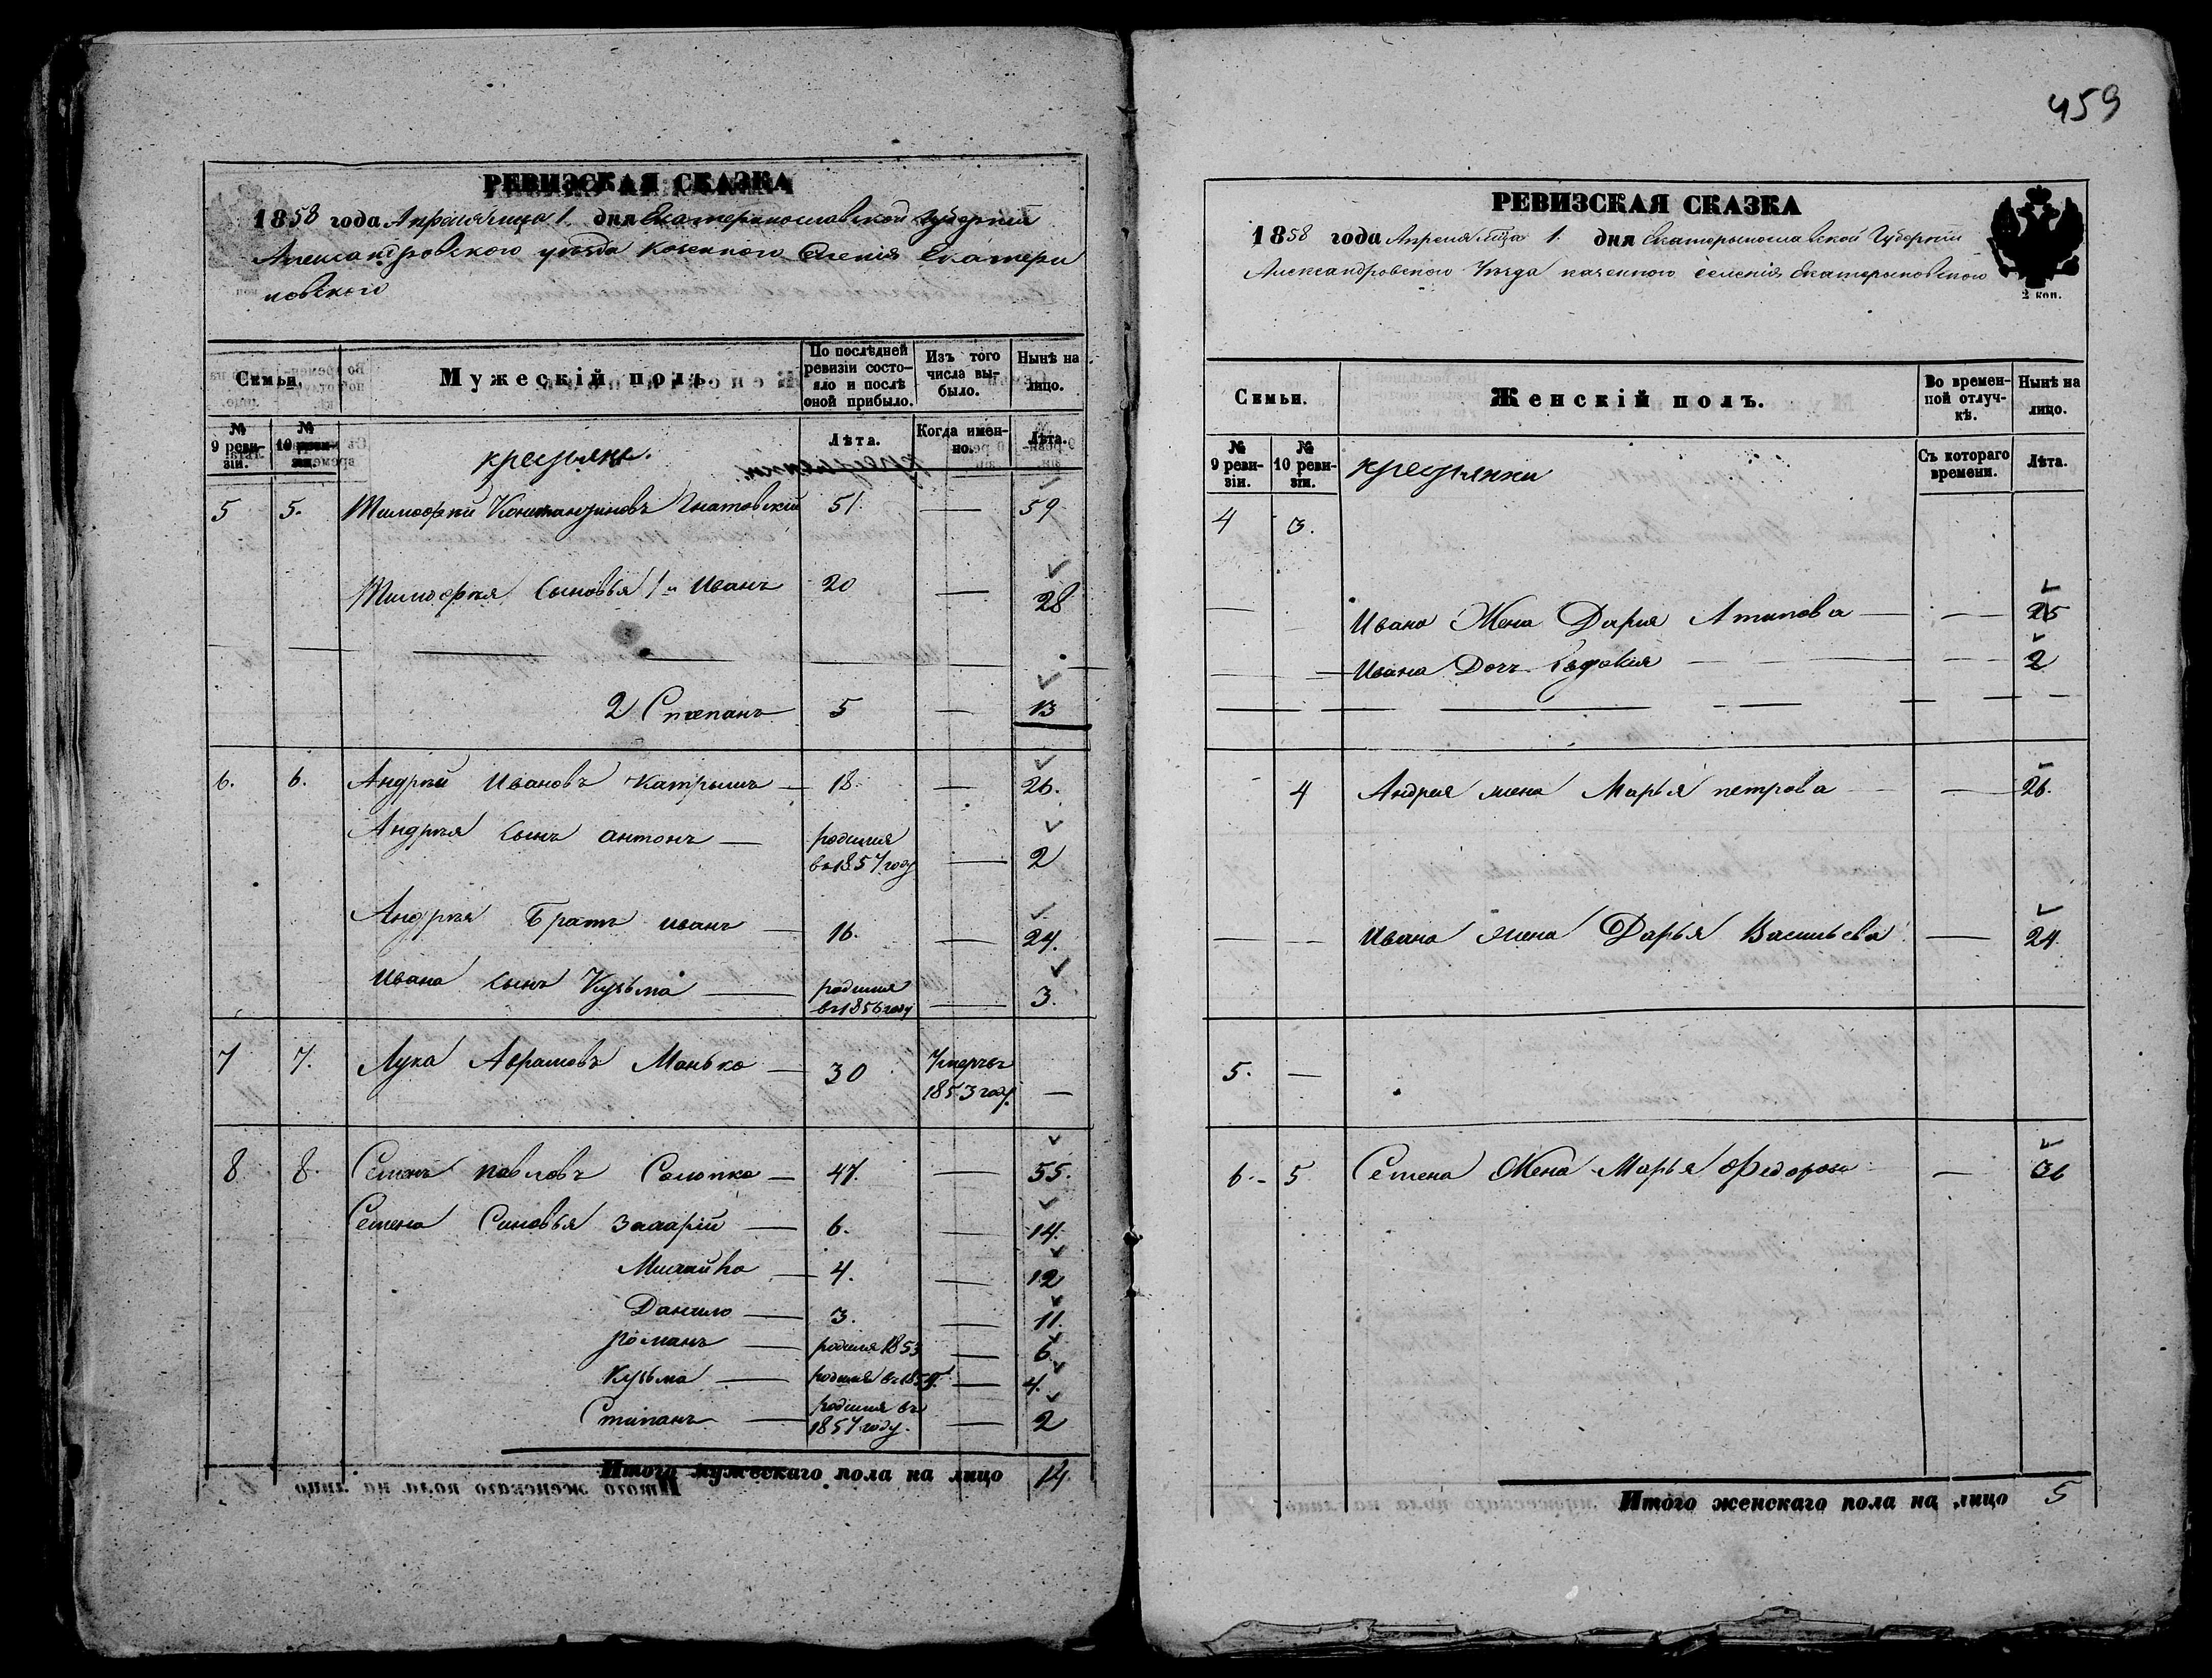 459
РЕВИЗСКАЯ СКАЗКА
1858 года Апреля м̃ца 1. дня Екатеринославской Губерніи
Александровского уѣзда Козенного Сленія Екатери
новского
Семьи. Мужескій полъ По послѣдней ревизіи состояло и послѣ оной прибыло. Изъ того числа выбыло. Нынѣ на лицо.
№ 9 ревизіи. № 10 ревизіи. крестьяне. Лѣта. Когда именно. Лѣта.
5 5. Тимофѣй Константиновъ Гнатовскій 51. — 59
Тимофѣя Сыновья 1й Иванъ 20 — 28
2 Степанъ 5 — 13
6. 6. Андрѣй Ивановъ Катрышъ — 18. — 26.
Андрѣя Сынъ антонъ — родился
въ 1857 году — 2
Андрѣя Братъ иванъ — 16. — 24.
Ивана Сынъ Кузьма — родился
въ 1856 году — 3.
7 7. Лука Аврамовъ Манько — 30 Умеръ въ
1853 году. —
8 8. Семенъ павловъ Солопко — 47. — 55.
Семена Синовья Захарій — 6. — 14.
Михайло — 4. — 12
Данило — 3. — 11.
романъ — родился 1853 — 6
Кузьма — родился въ 185 — 4.
Стипанъ — родился въ
1857 году. — 2
Итого мужескаго пола на лицо 14.
РЕВИЗСКАЯ СКАЗКА
1858 года Апреля м̃ца 1. дня Екатерыnославской Губерніи
Александровского Уезда казенного селенія Екатерыновского
2 коп.
Семьи. Женскій полъ. Во временной отлучкѣ. Нынѣ на лицо.
№ 9 ревизіи. № 10 ревизіи. крестьянки Съ котораго времени. Лѣта.
4 3.
— Ивана Жена Дария Антипова — — 25
— — Ивана Дочъ Евдокія — — 2
4 Андрея жена Марья петрова — — 26.
— — Ивана жена Дарья Васильева — 24.
5. —
6. - 5 Семена Жена Марья Федорова — 36
Итого женскаго пола на лицо 5